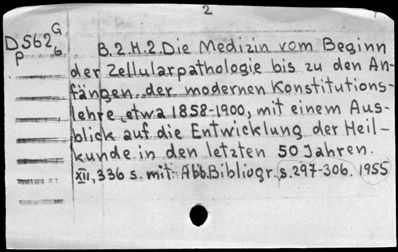 2
D 562 G 6
p
B.2.H.2.Die Medizin vom Beginn
der Zellularpathologie bis zu den An-
fängen der modernen Konstitutions-
lehre, etwa 1858-1900, mit einem Aus-
blick auf die Entwicklung der Heil-
kunde in den letzten 50 Jahren.
XII, 336 s. mit Abb. Bibliogr. s.297-306. 1955